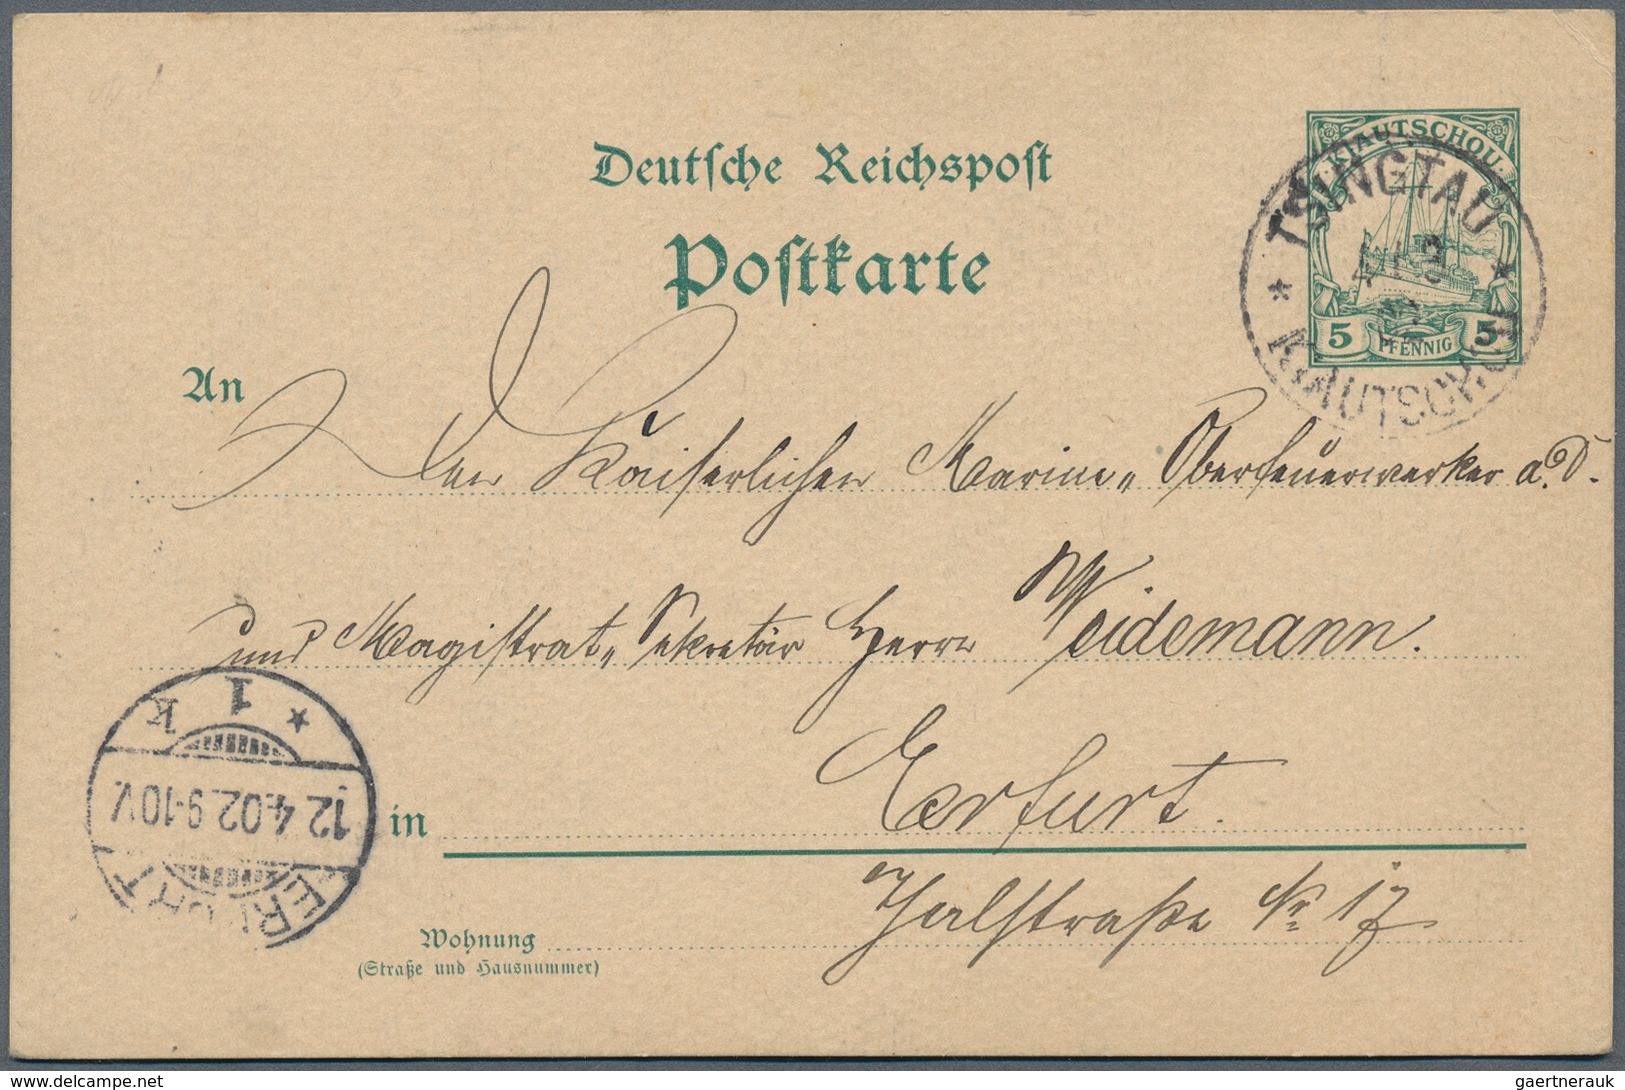 Deutsche Reichspost
Postkarte
KIAUTSCHOU
5 PFENNIG 5
TSINGTAU
KIAUTSCHOU
An
Den Kaiserlichen Marine„ Oberfeuerwerker a.D.
und Magistrat„ Sekretär Herrn Weidemann.
in Erfurt.
Wohnung Thalstraße Nr 17
(Straße und Hausnummer)
ERFURT
12.4.02.9-10V.
* 1 k
delcampe.net
gaertnerauk